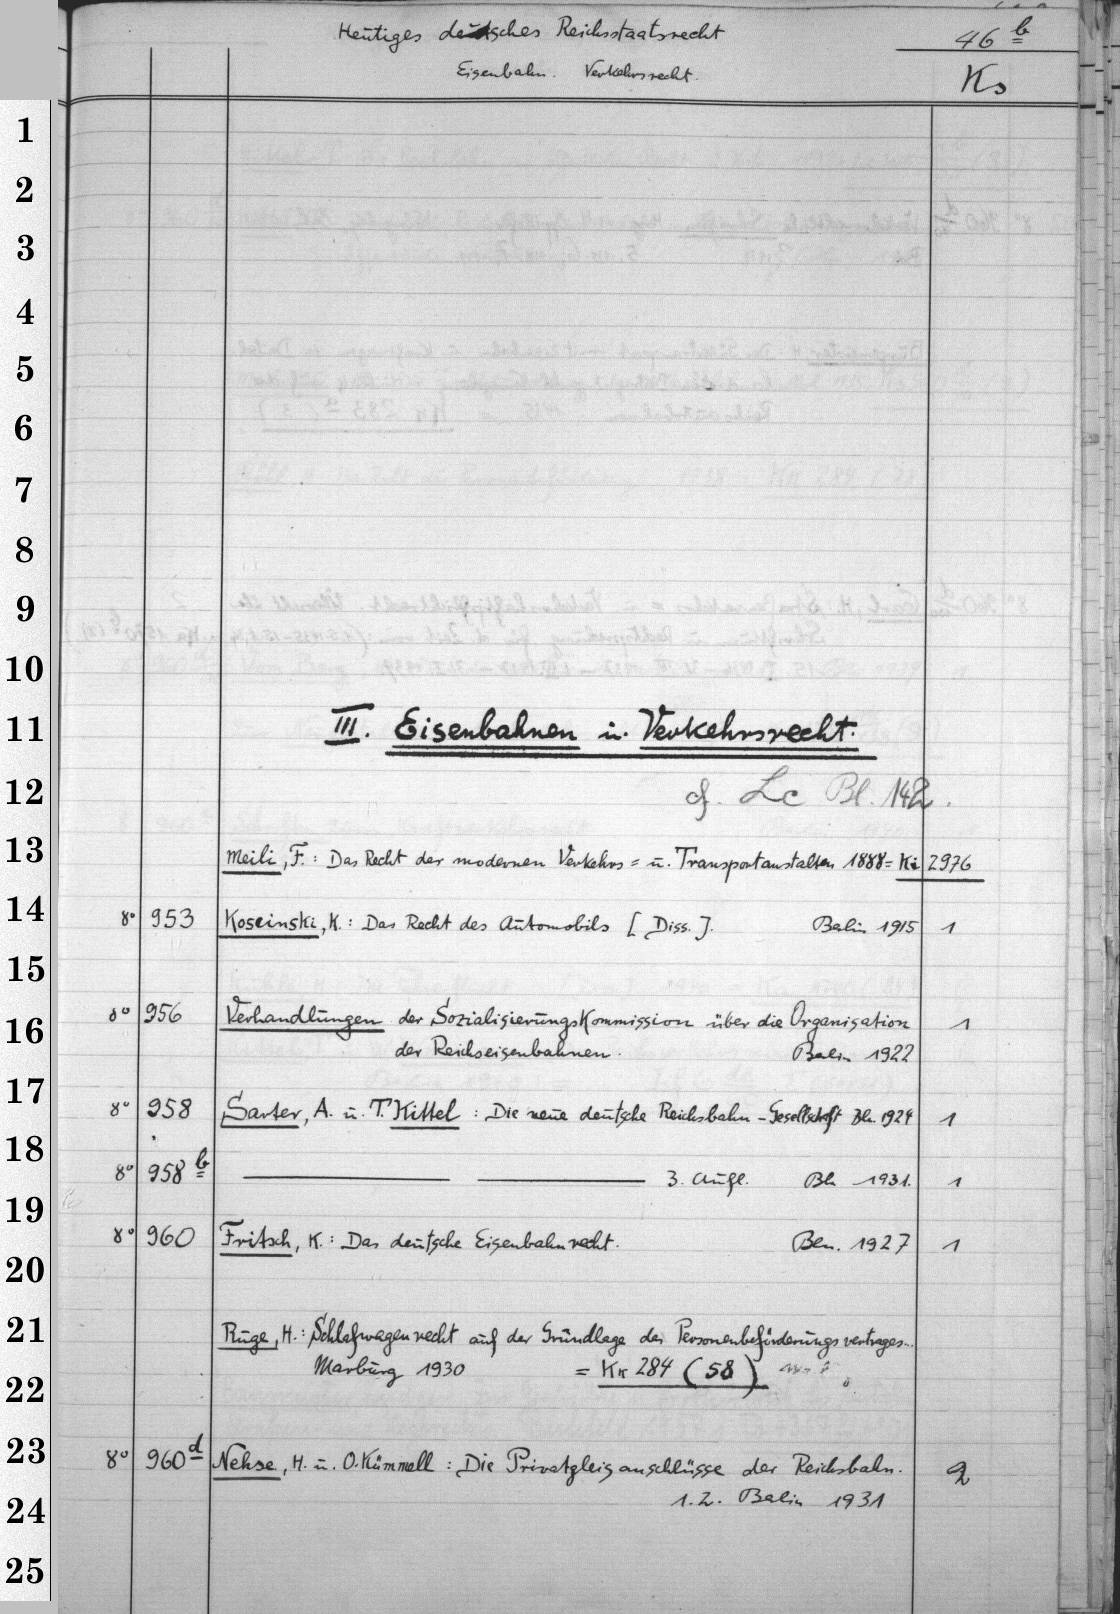 Heutiges deutsches Reichsstaatsrecht 46 b
Eisenbahn. Verkehrsrecht. Ks
1
2
3
4
5
6
7
8
9
10
11 III. Eisenbahnen u. Verkehrsrecht.
12 cf. Lc Bl. 142.
13 Meili, F.: Das Recht der modernen Verkehrs= u. Transportanstalten 1888 = Ki 2976
14 8° 953 Koscinski, K.: Das Recht des Automobils [Diss.]. Berlin 1915 1
15
16 8° 956 Verhandlungen der Sozialisierungskommission über die Organisation 1
der Reichseisenbahnen. Berlin 1922
17 8° 958 Sarter, A. u. T. Kittel: Die neue deutsche Reichsbahn-Gesellschaft Bln. 1924 1
18 8° 958 b ——— ——— 3. Aufl. Bln 1931. 1
19 8° 960 Fritsch, K.: Das deutsche Eisenbahnrecht. Bln. 1927 1
20
21 Ruge, H.: Schlafwagenrecht auf der Grundlage des Personenbeförderungsvertrages..
22 Marburg 1930 = Kk 284 (58)
23 8° 960 d Nehse, H. u. O. Kümmell: Die Privatgleisanschlüsse der Reichsbahn. 2
24 1.2. Berlin 1931
25